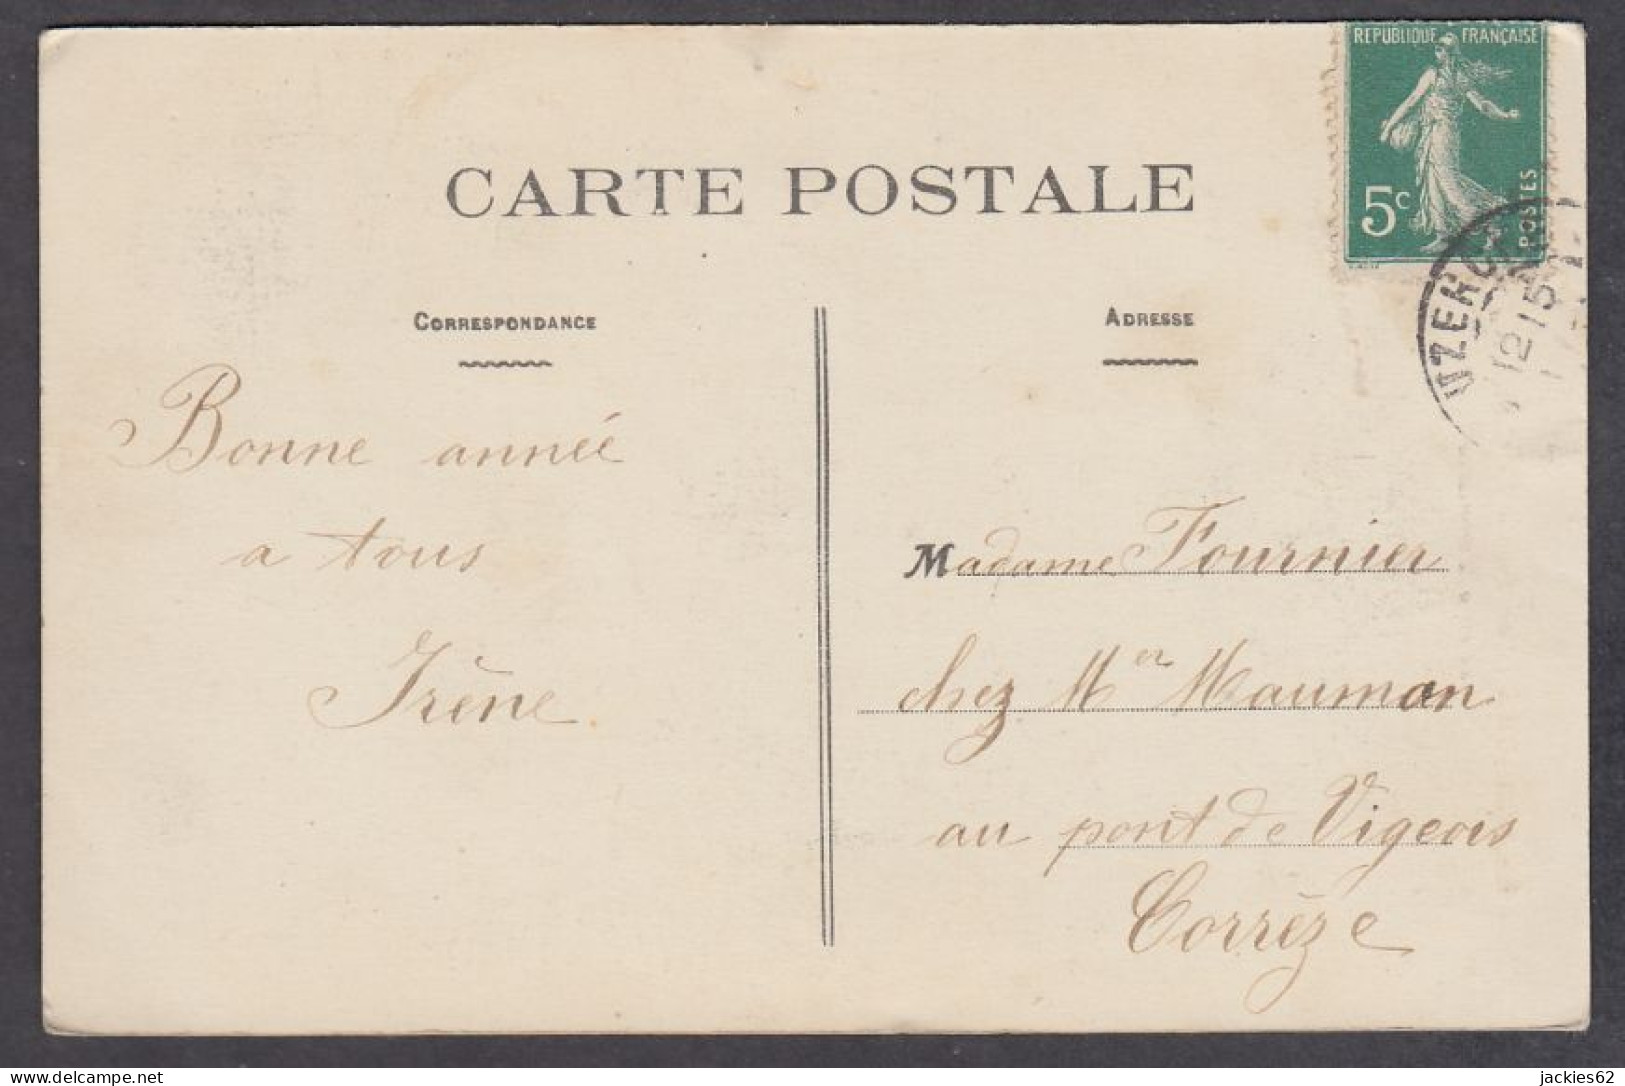 REPUBLIQUE FRANÇAISE
5c
POSTES
CARTE POSTALE
CORRESPONDANCE
ADRESSE
12 15
Bonne année
a tous
Irène
Madame Fournier
chez Mr Mauman
au pont de Vigeois
Corrèze
delcampe.net
jackies62